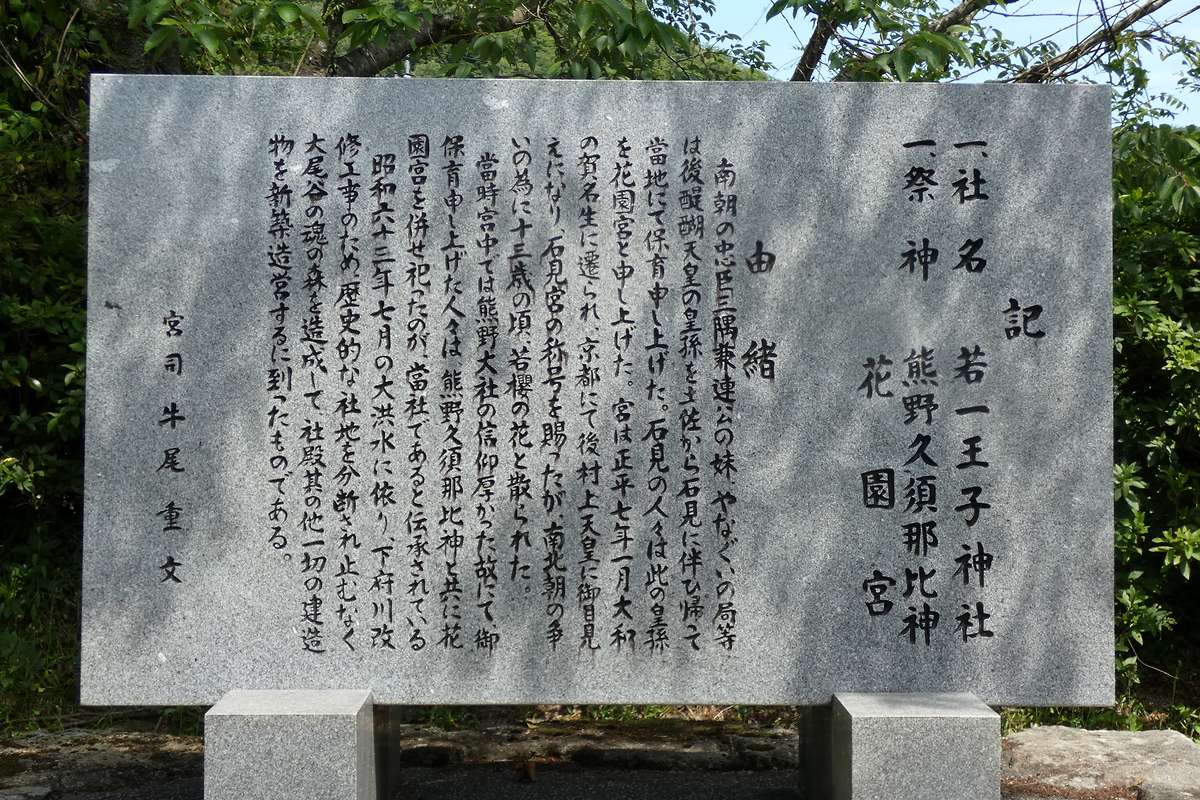 記
一、社名 若一王子神社
一、祭神 熊野久須那比神
花園宮
由緒
南朝の忠臣三隅兼連公の妹、やなぐいの局等
は後醍醐天皇の皇孫を土佐から石見に伴ひ帰って
當地にて保育申し上げた。石見の人々は此の皇孫
を花園宮と申し上げた。宮は正平七年一月大和
の賀名生に遷られ、京都にて後村上天皇に御目見
えになり、石見宮の称号を賜ったが、南北朝の争
いの為に十三歳の頃、若櫻の花と散られた。
當時宮中では熊野大社の信仰厚かった故にて、御
保育申し上げた人々は、熊野久須那比神と共に花
園宮を併せ祀ったのが、當社であると伝承されている
昭和六十三年七月の大洪水に依り、下府川改
修工事のため歴史的な社地を分断され止むなく
大尾谷の魂の森を造成して、社殿其の他一切の建造
物を新築造営するに到ったものである。
宮司 牛尾重文